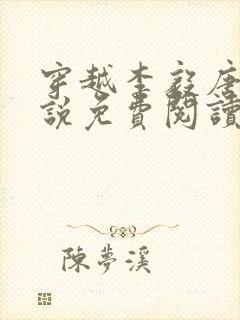 穿越李毅唐
說免費閱讀
陳夢溪